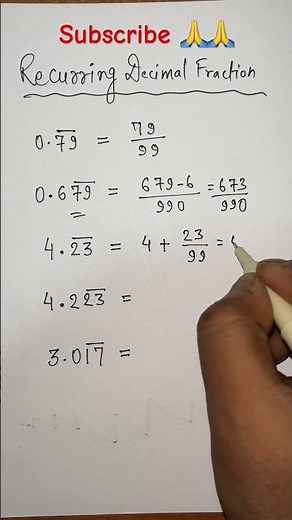 Subscribe 🙏🙏
Recurring Decimal Fraction
0.7̅9̅ = 79/99
0.67̅9̅ = 679-6/990 = 673/990
4.2̅3̅ = 4 + 23/99 =
4.22̅3̅ =
3.01̅7̅ =